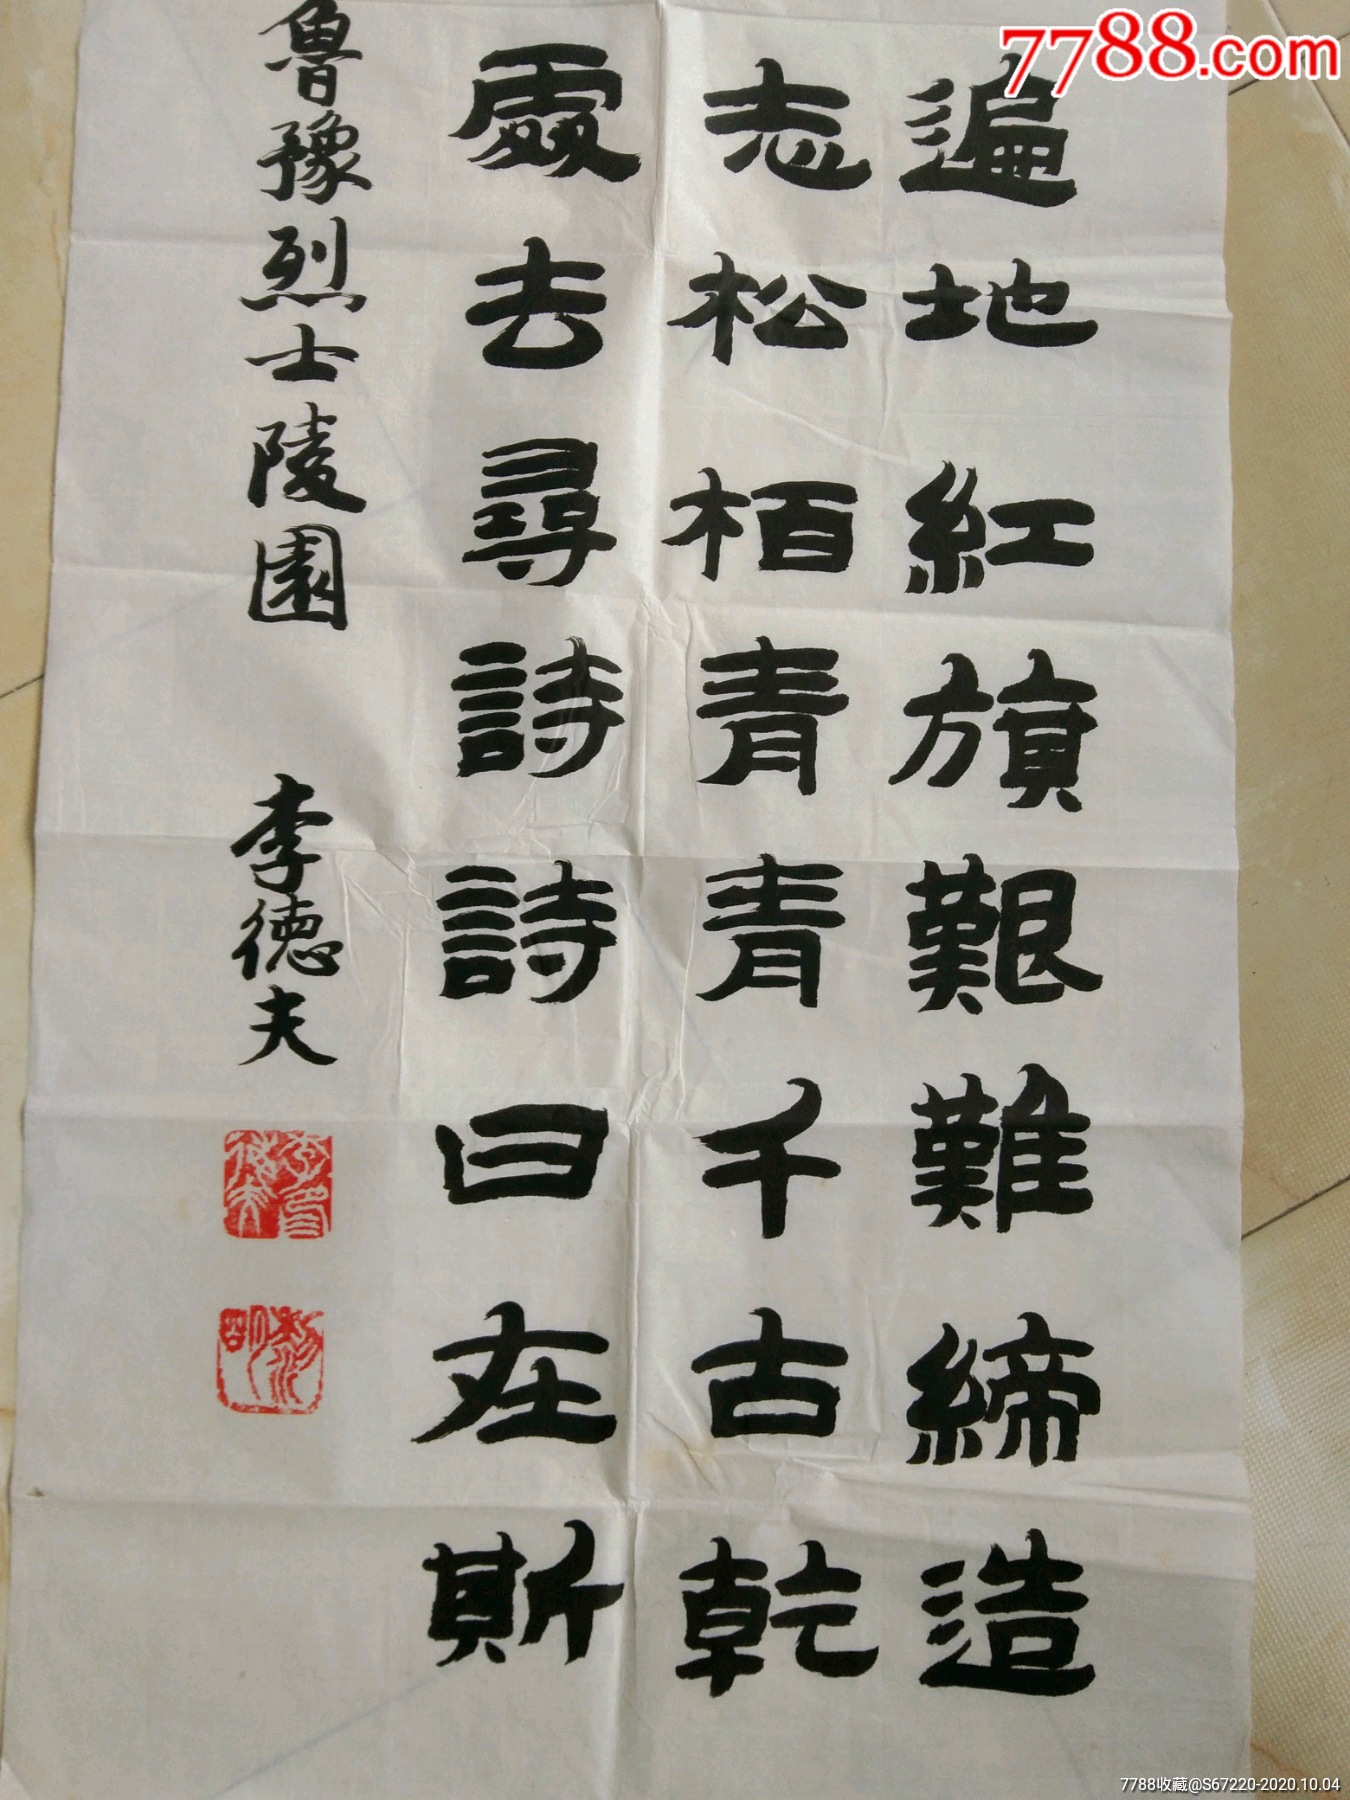 7788.com
遍地紅旗艱難締造
志松柏青青千古乾
處去尋詩詩曰在斯
魯豫烈士陵園 李德夫
7788收藏@S67220-2020.10.04